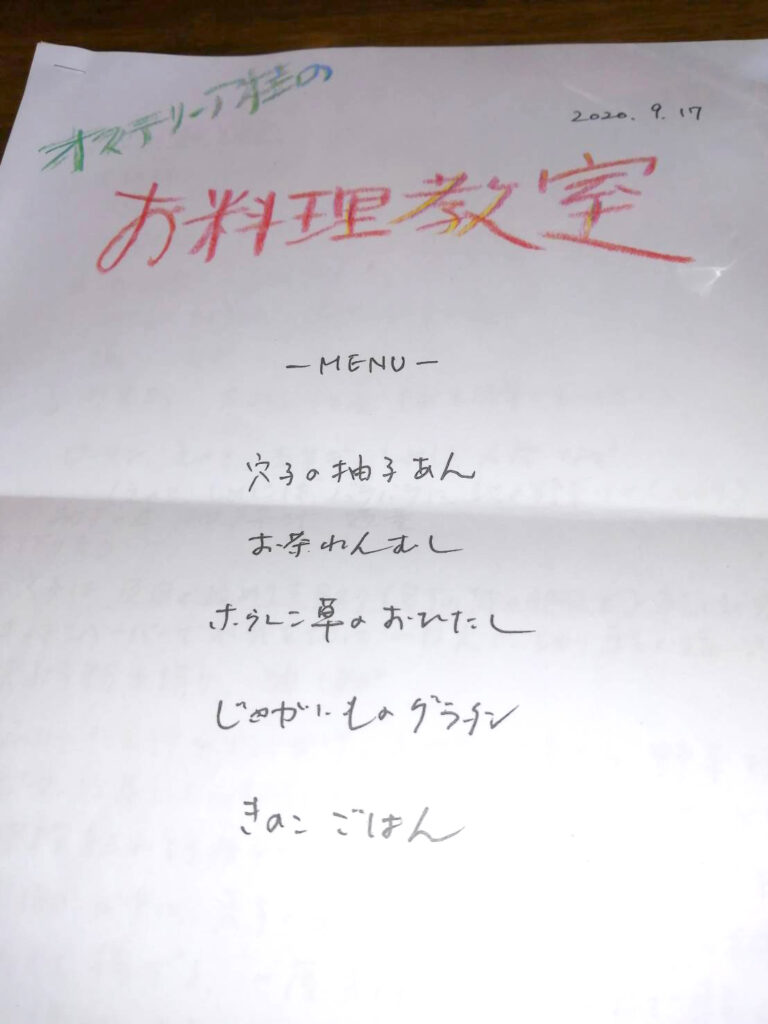 オステリア桂の
2020.9.17
お料理教室
—MENU—
穴子の柚子あん
お茶わんむし
ホウレン草のおひたし
じゃがいものグラタン
きのこごはん